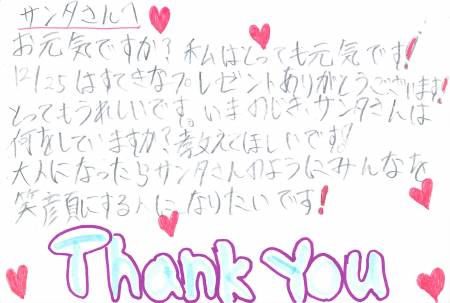 サンタさんへ
お元気ですか？私はとっても元気です！
12/25はすてきなプレゼントありがとうございます！
とってもうれしいです。いまのじき、サンタさんは
何をしていますか？教えてほしいです！
大人になったらサンタさんのようにみんなを
笑顔にする人になりたいです！
Thank You